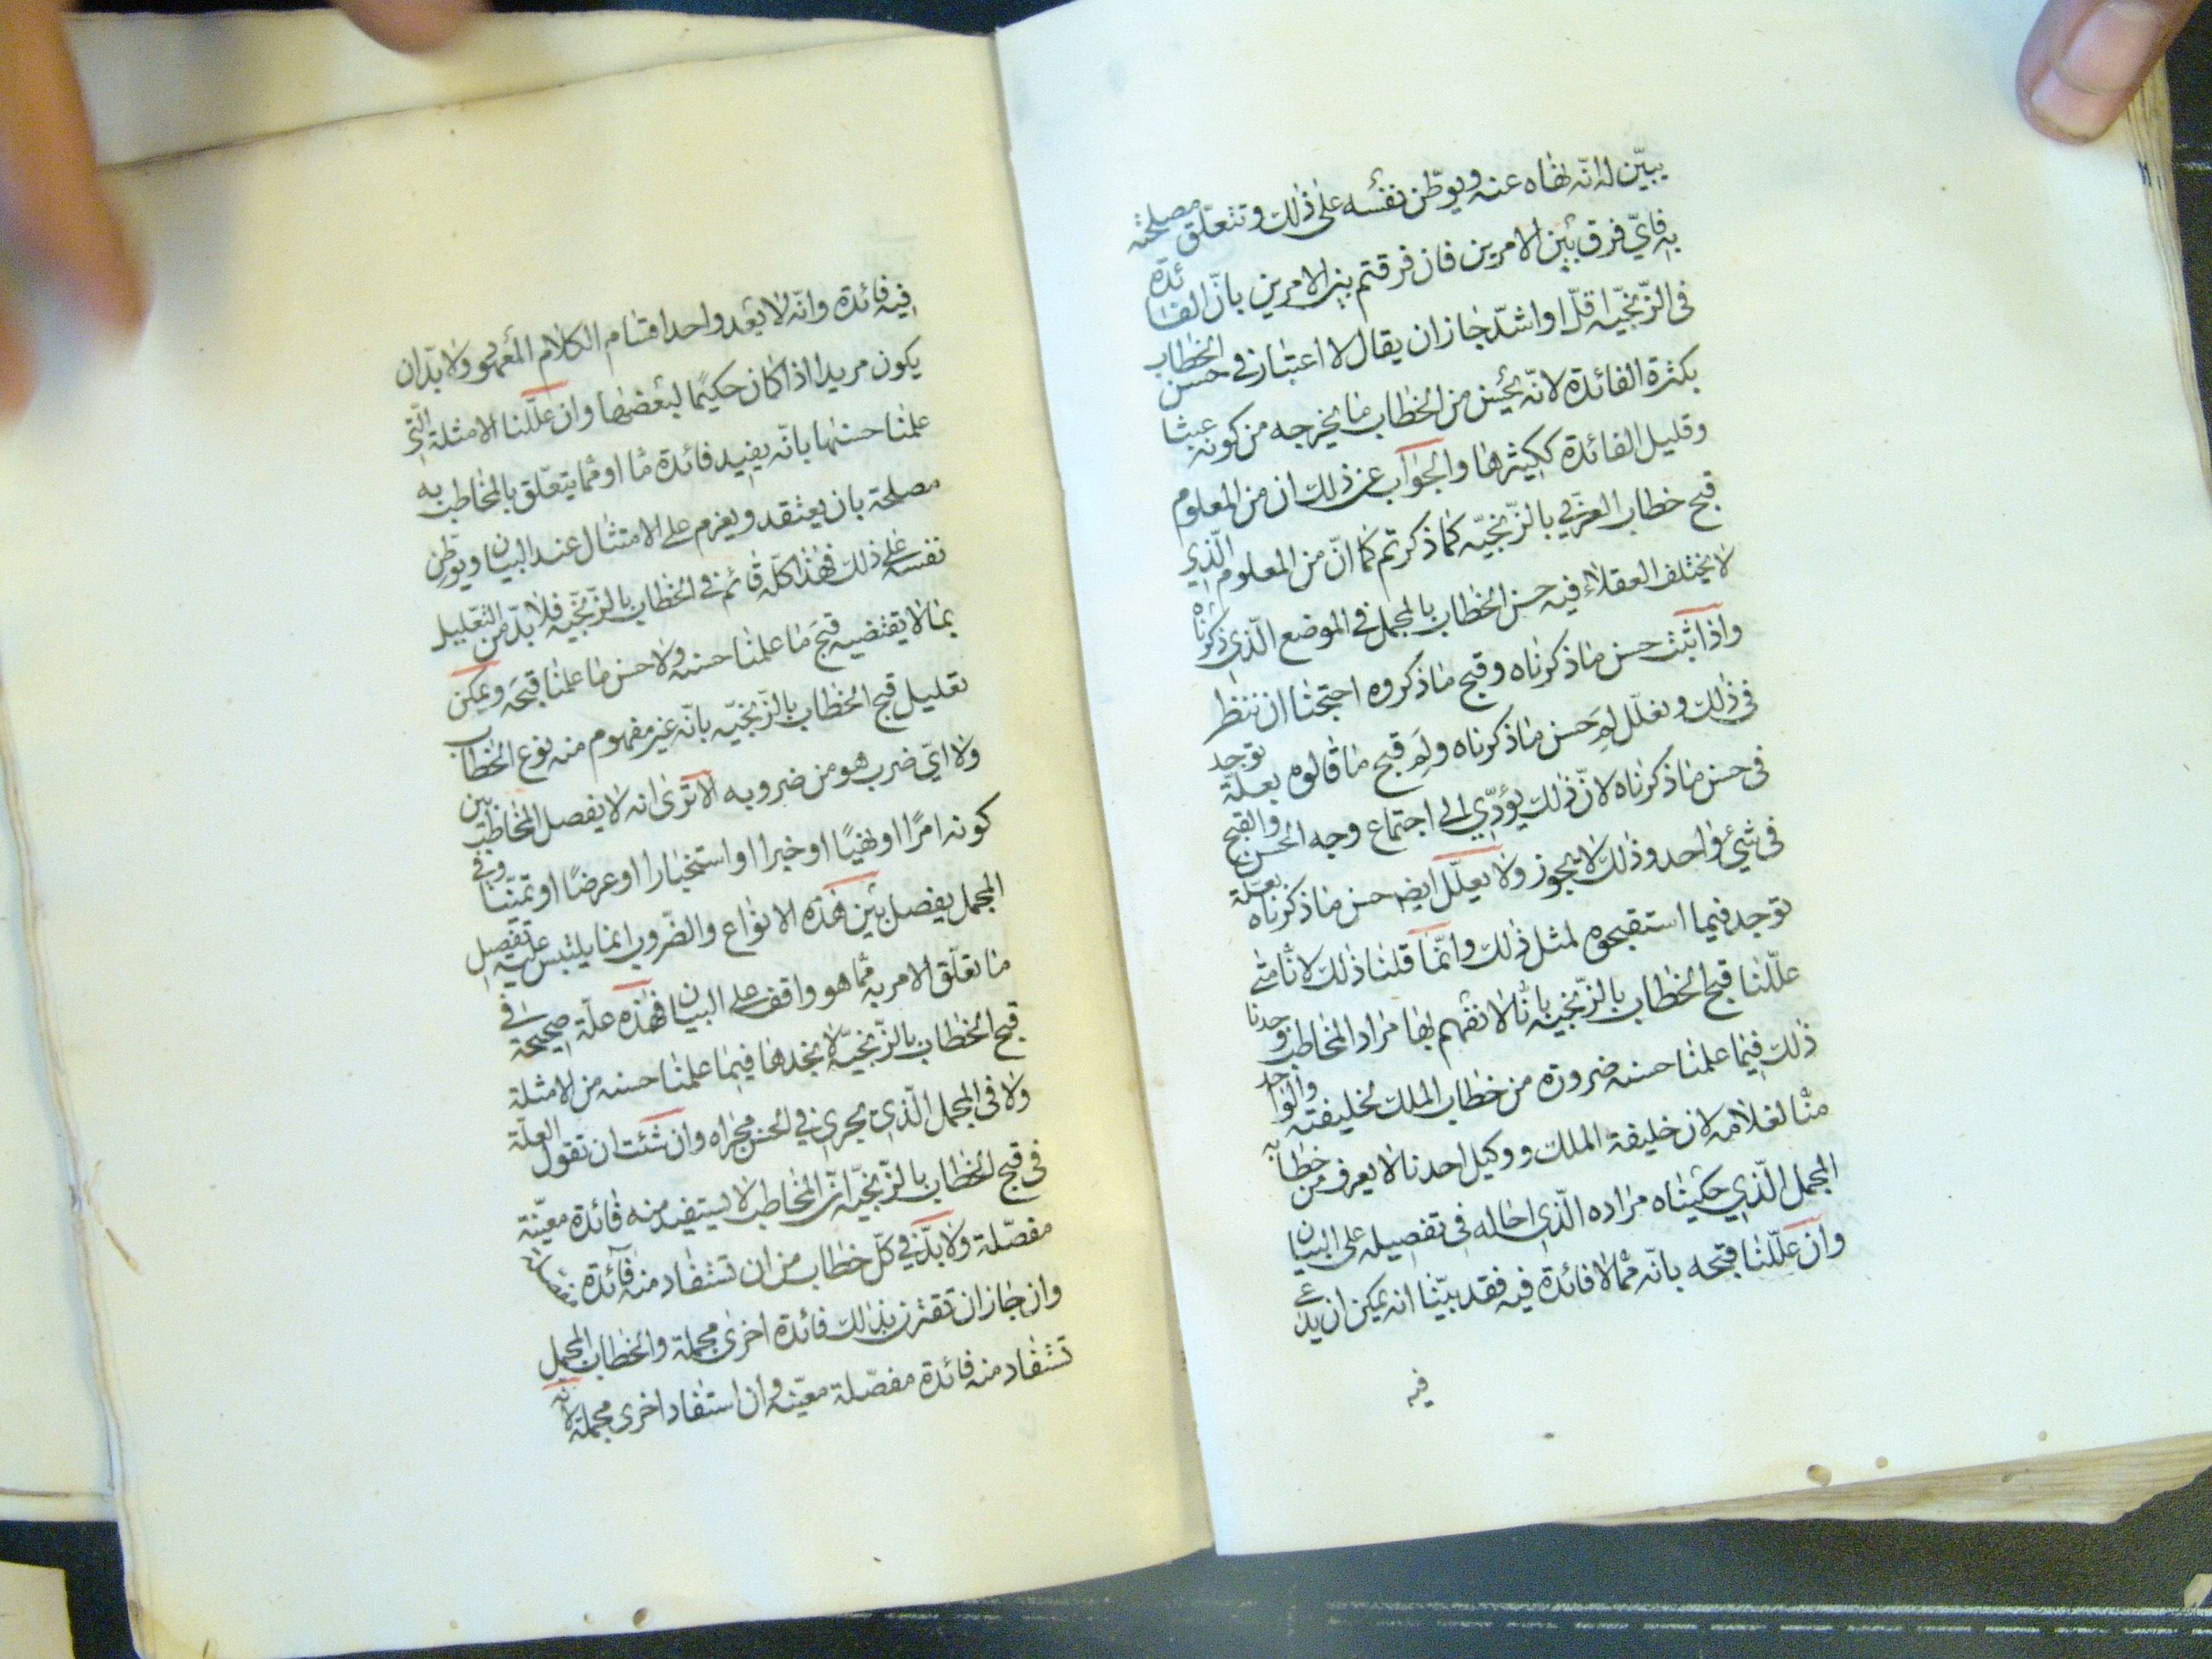 يبيّن له انّه نهاه عنه ويوطّن نفسه على ذلك وتتعلّق مصلحته
به فايّ فرق بين الامرين فان فرقتم بين الامرين بانّ الفائدة
فى الزّنجيّه اقلّ او اشدّ جاز ان يقال لا اعتبار فى حسن الخطاب
بكثرة الفائدة لانّه يحسن من الخطاب ما يخرجه من كونه عبثا
وقليل الفائدة ككثيرها والجواب عن ذلك ان من المعلوم
قبح خطاب العربي بالزّنجيّه كما ذكرتم كما انّ من المعلوم الّذي
لا يختلف العقلاء فيه حسن الخطاب بالمجمل فى الموضع الّذي ذكرناه
واذا ثبت حسن ما ذكرناه وقبح ما ذكروه احتجنا ان ننظر
فى ذلك ونعلّل لم حسن ما ذكرناه ولم قبح ما قالوه بعلّة توجد
فى حسن ما ذكرناه لانّ ذلك يؤدّي الى اجتماع وجه الحسن والقبح
فى شئ واحد وذلك لا يجوز ولا يعلّل ايضا حسن ما ذكرناه بعلّة
توجد فيما استقبحوه لمثل ذلك وانّما قلنا ذلك لانّا متى
علّلنا قبح الخطاب بالزّنجيّه بانّا لا نفهم بها مراد المخاطب وجدنا
ذلك فيما علمنا حسنه ضرورة من خطاب الملك لخليفته والواحد
منّا لغلامه لان خليفة الملك ووكيل احدنا لا يعرف من خطابه
المجمل الّذي حكيناه مراده الّذي احاله فى تفصيله على البيان
وان علّلنا قبحه بانّه ممّا لا فائدة فيه فقد بيّنا انه يمكن ان يدّعى
فيه
فيه فائدة وانّه لا يعد واحدا اقسام الكلام المعهود ولا بدّ ان
يكون مريدا اذا كان حكيمًا لبعضها وان علّلنا الامثلة الّتي
علمنا حسنها بانّه يفيد فائدة ما او ممّا يتعلّق بالمخاطب به
مصلحة بان يعتقد ويعزم على الامتثال عند البيان ويوطّن
نفسه على ذلك فهذا كلّه قائم فى الخطاب بالزّنجيّه فلا بدّ من التّعليل
بما لا يقتضيه قبح ما علمنا حسنه ولا حسن ما علمنا قبحه ويمكن
تعليل قبح الخطاب بالزّنجيّه بانّه غير مفهوم منه نوع الخطاب
ولا ايّ ضرب هو من ضروبه الا ترى انه لا يفصل المخاطب بين
كونه امرًا او نهيًا او خبرا او استخبارا او عرضًا او تمنّيا وفى
المجمل يفصل بين هذه الانواع والضّروب انما يلتبس عليه تفصيل
ما تعلّق الامر به ممّا هو واقف على البيان فهذه علّة صحيحة فى
قبح الخطاب بالزّنجيّه لا نجدها فيما علمنا حسنه من الامثلة
ولا فى المجمل الّذي يجرى في الحسن مجراه وان شئت ان تقول العلّة
فى قبح الخطاب بالزّنجيّه انّ المخاطب لا يستفيد منه فائدة معيّنة
مفصّلة ولا بدّ في كلّ خطاب من ان تستفاد منه فائدة مفصلة
وان جاز ان تقترن بذلك فائدة اخرى مجملة والخطاب المجمل
تستفاد منه فائدة مفصّلة معيّنه وان استفاد اخرى مجملة لانه